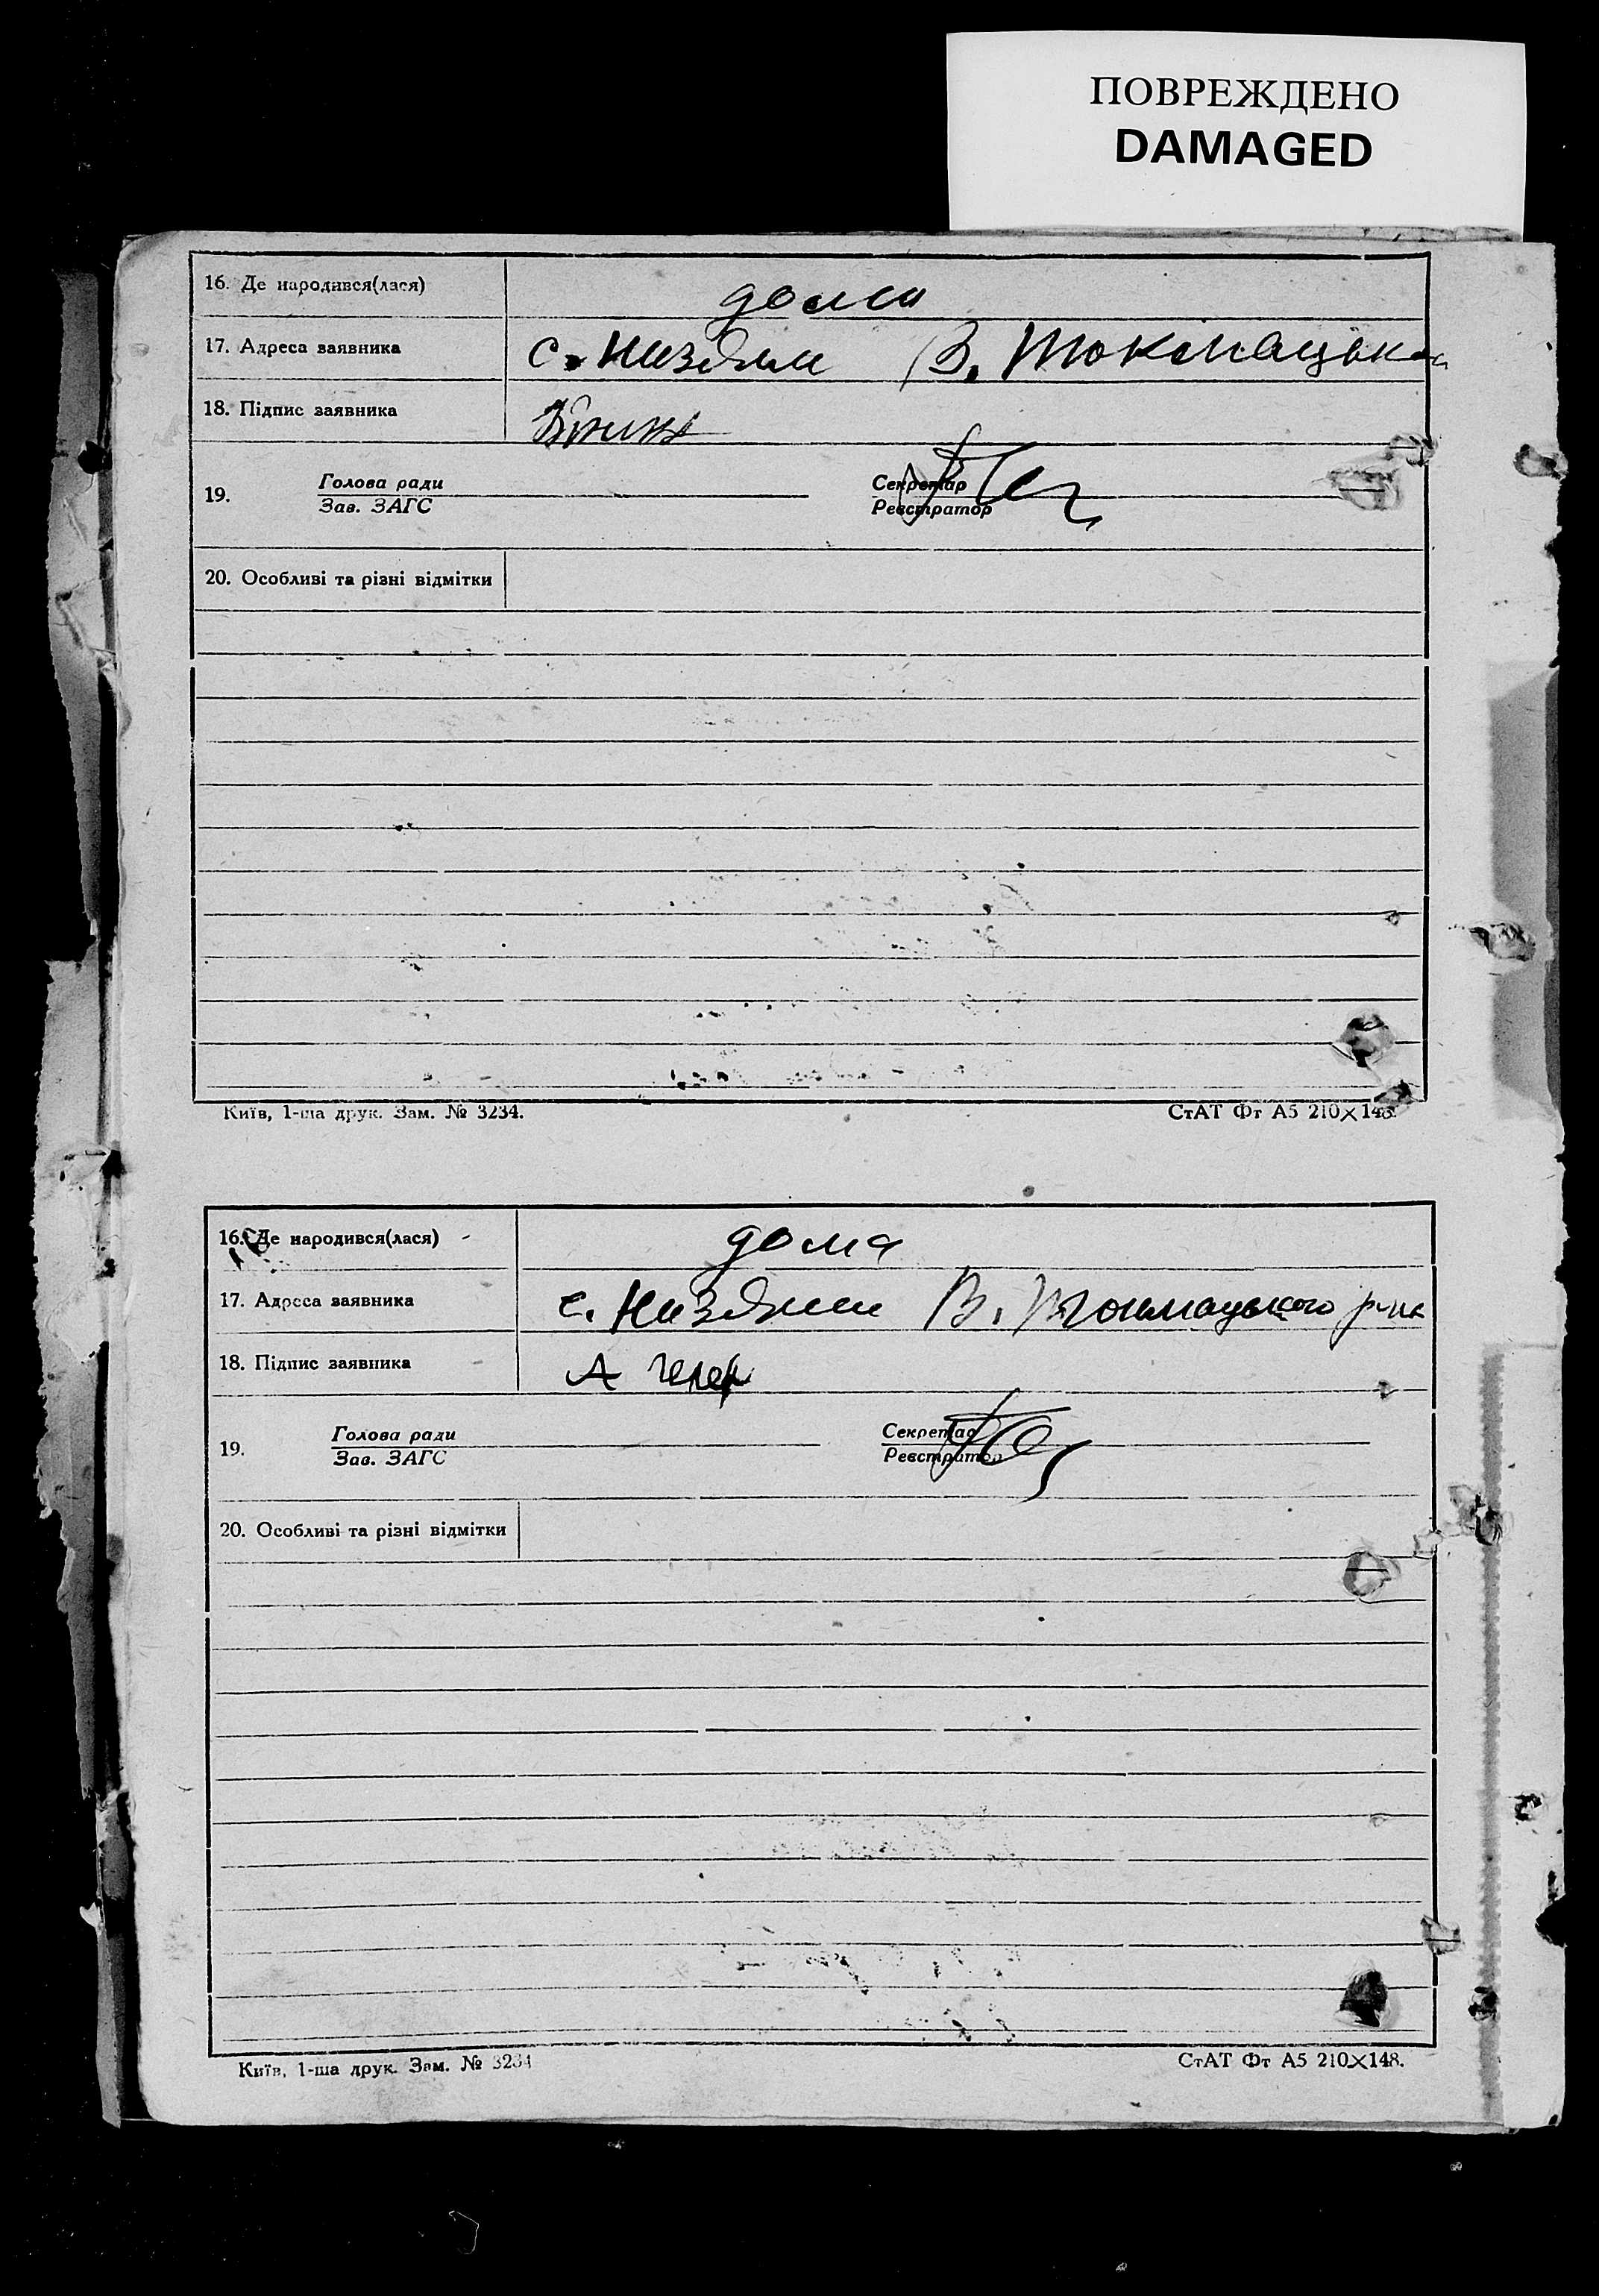 ПОВРЕЖДЕНО
DAMAGED
16. Де народився(лася) дома
17. Адреса заявника с. Низяни В. Токмацьк
18. Підпис заявника
Голова ради Секретар
19.
Зав. ЗАГС Реєстратор
20. Особливі та різні відмітки
Київ, 1-ша друк. Зам. № 3234.
СтАТ Фт А5 210×148.
16. Де народився(лася) дома
17. Адреса заявника с. Низяни В. Токмацького р-на
18. Підпис заявника А
Голова ради Секретар
19.
Зав. ЗАГС Реєстратор
20. Особливі та різні відмітки
Київ, 1-ша друк. Зам. № 3234
СтАТ Фт А5 210×148.